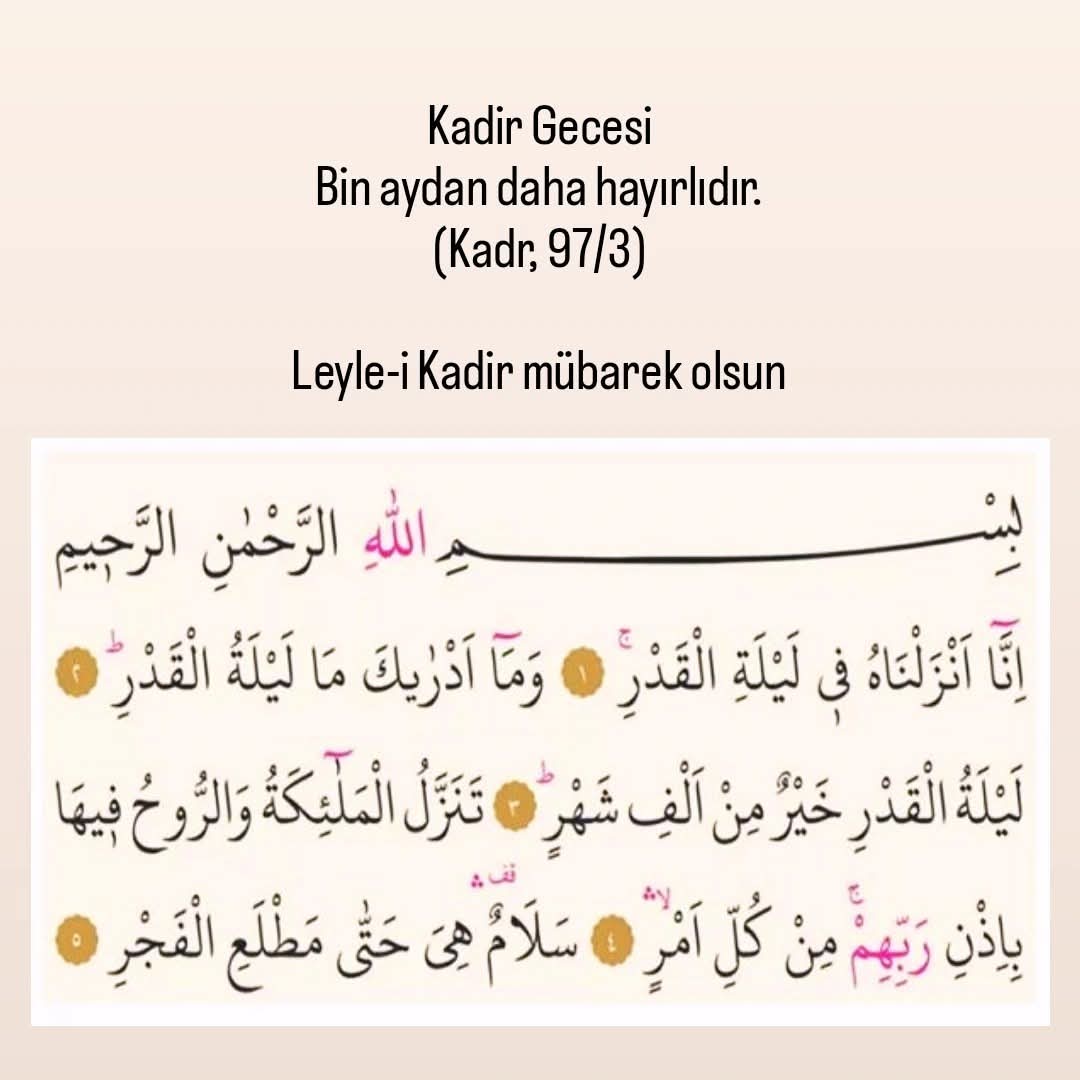 Kadir Gecesi
Bin aydan daha hayırlıdır.
(Kadr, 97/3)
Leyle-i Kadir mübarek olsun
بِسْمِ اللّٰهِ الرَّحْمٰنِ الرَّحٖيمِ
اِنَّٓا اَنْزَلْنَاهُ فٖي لَيْلَةِ الْقَدْرِۚ ١ وَمَٓا اَدْرٰيكَ مَا لَيْلَةُ الْقَدْرِؕ ٢
لَيْلَةُ الْقَدْرِ خَيْرٌ مِنْ اَلْفِ شَهْرٍؕ ٣ تَنَزَّلُ الْمَلٰٓئِكَةُ وَالرُّوحُ فٖيهَا
بِاِذْنِ رَبِّهِمْۚ مِنْ كُلِّ اَمْرٍۙۛ ٤ سَلَامٌ قف ۛ هِيَ حَتّٰى مَطْلَعِ الْفَجْرِ ٥